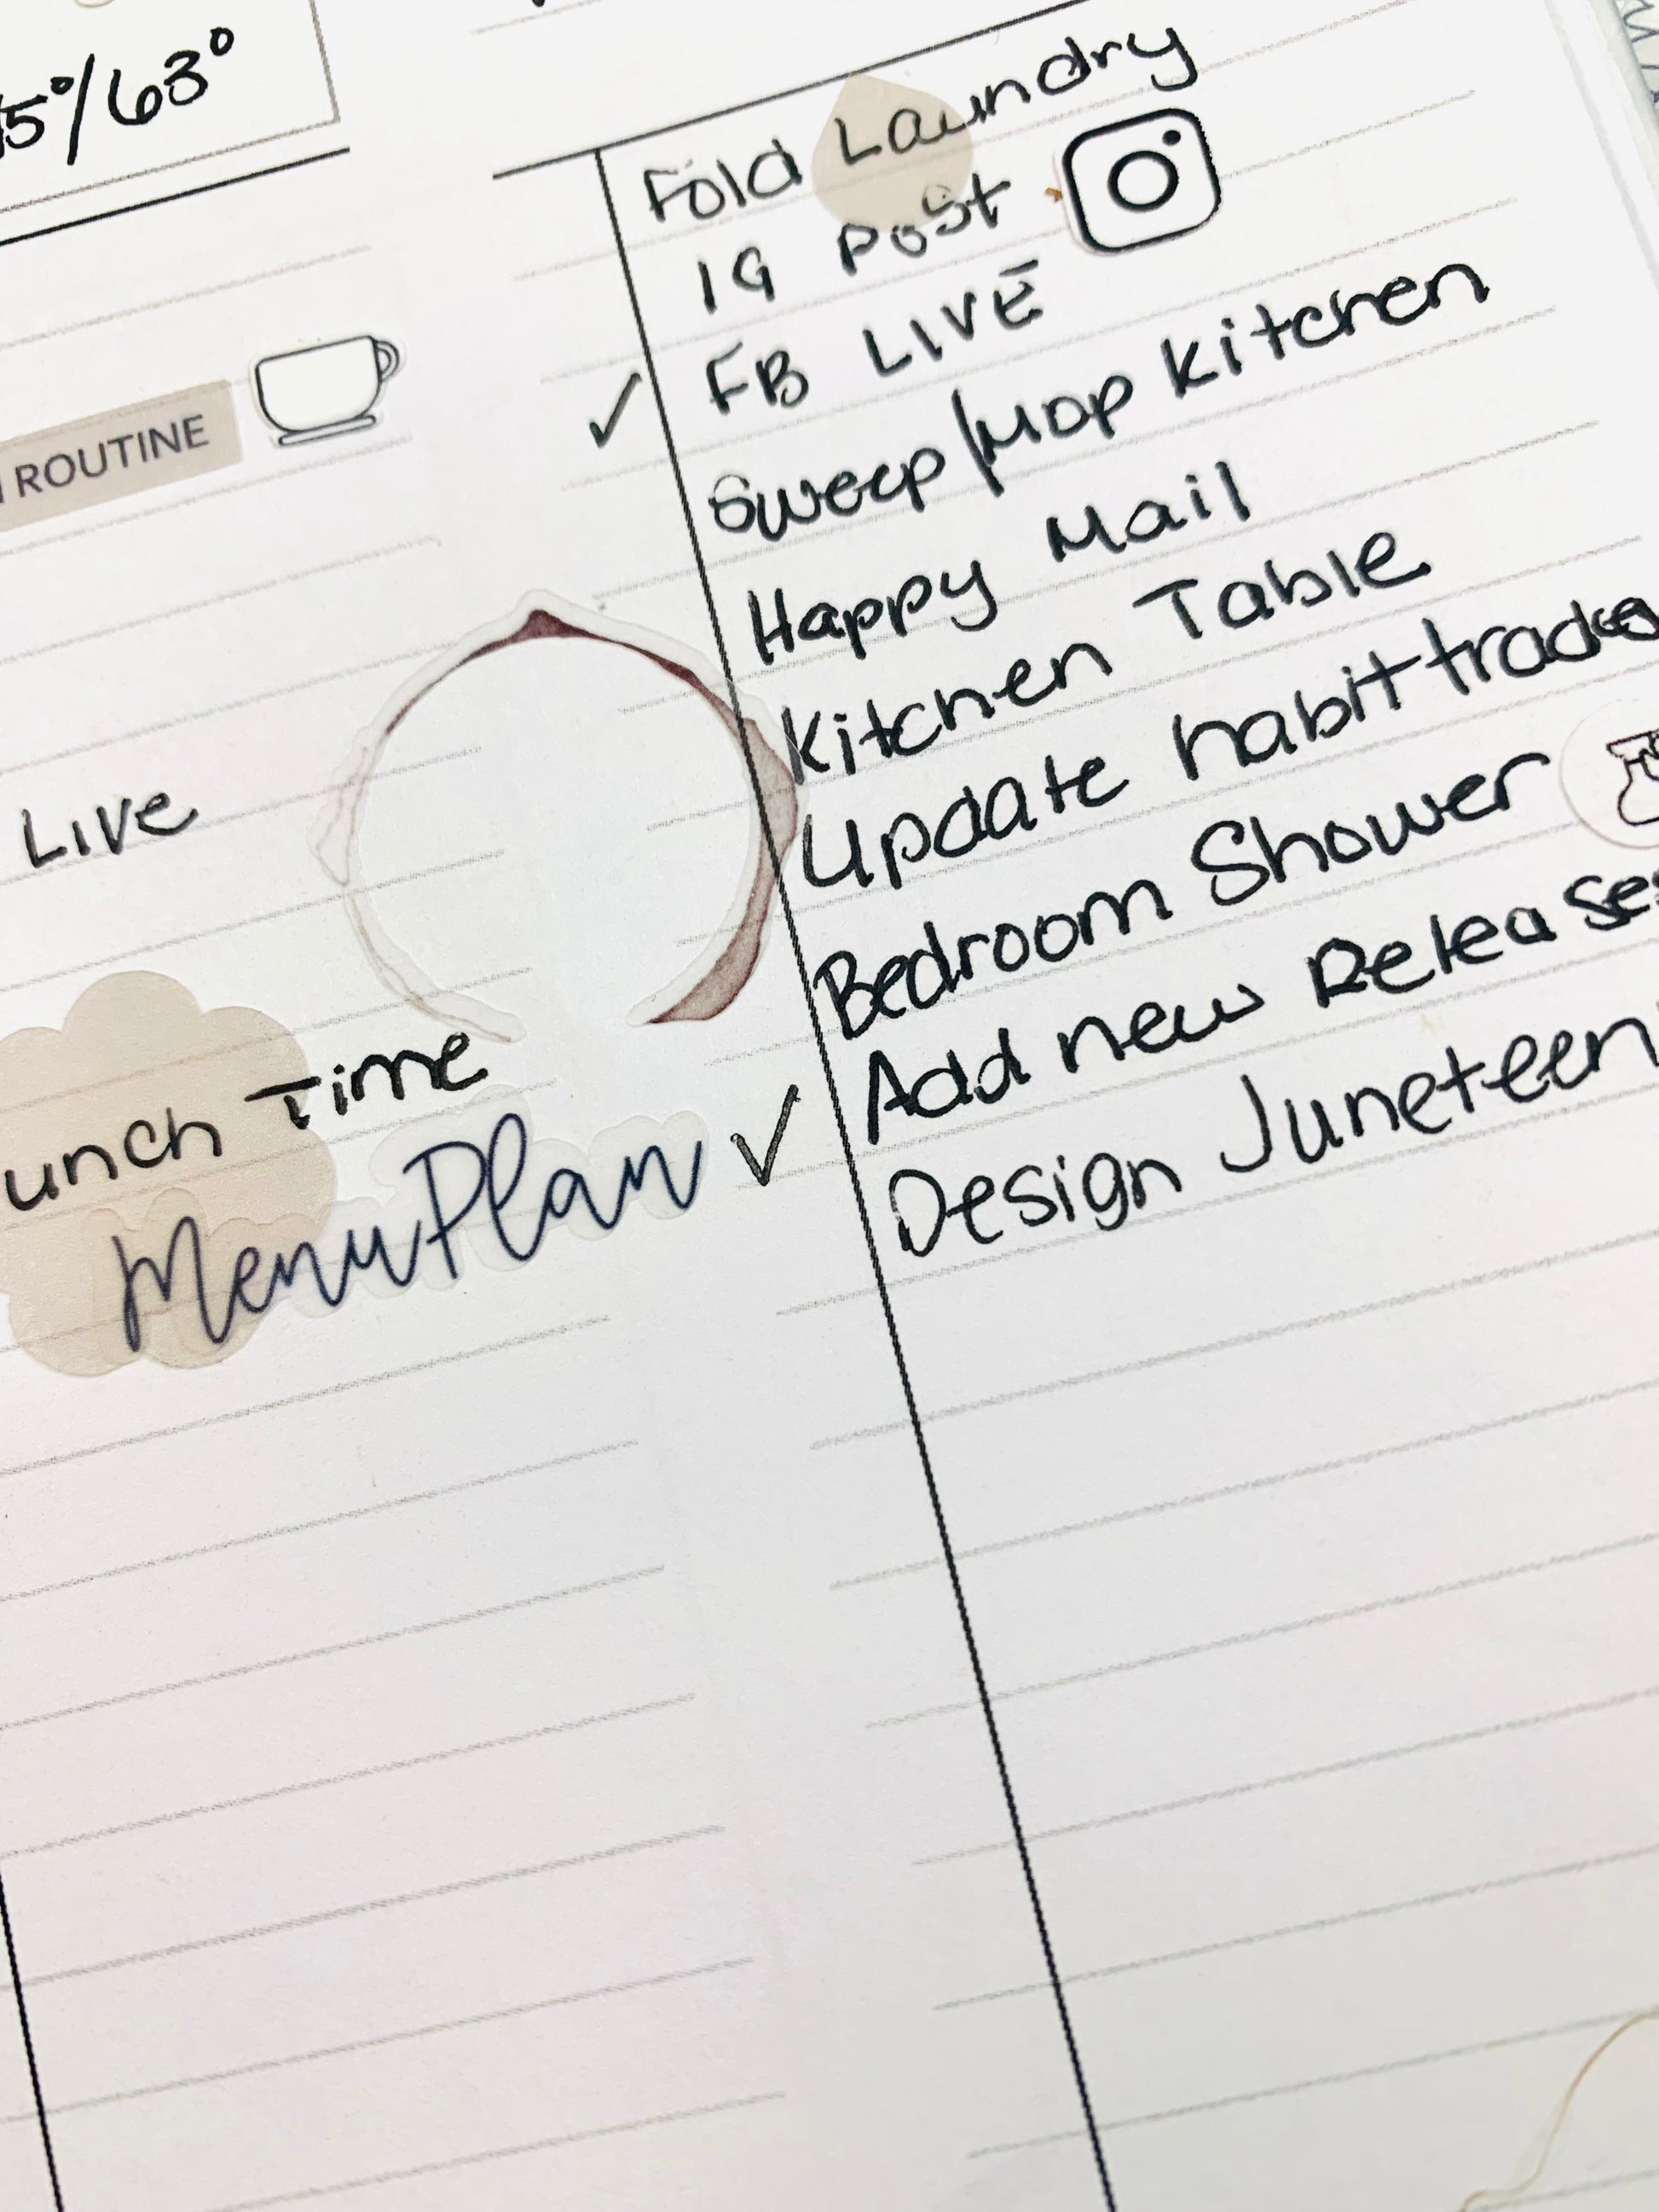 5°/63°
ROUTINE
Live
unch Time
Menu Plan ✓
Fold Laundry
IG Post
✓ FB LIVE
Sweep/Mop Kitchen
Happy Mail
Kitchen Table
Update habit
Bedroom Shower
Add new Releases
Design Juneteen